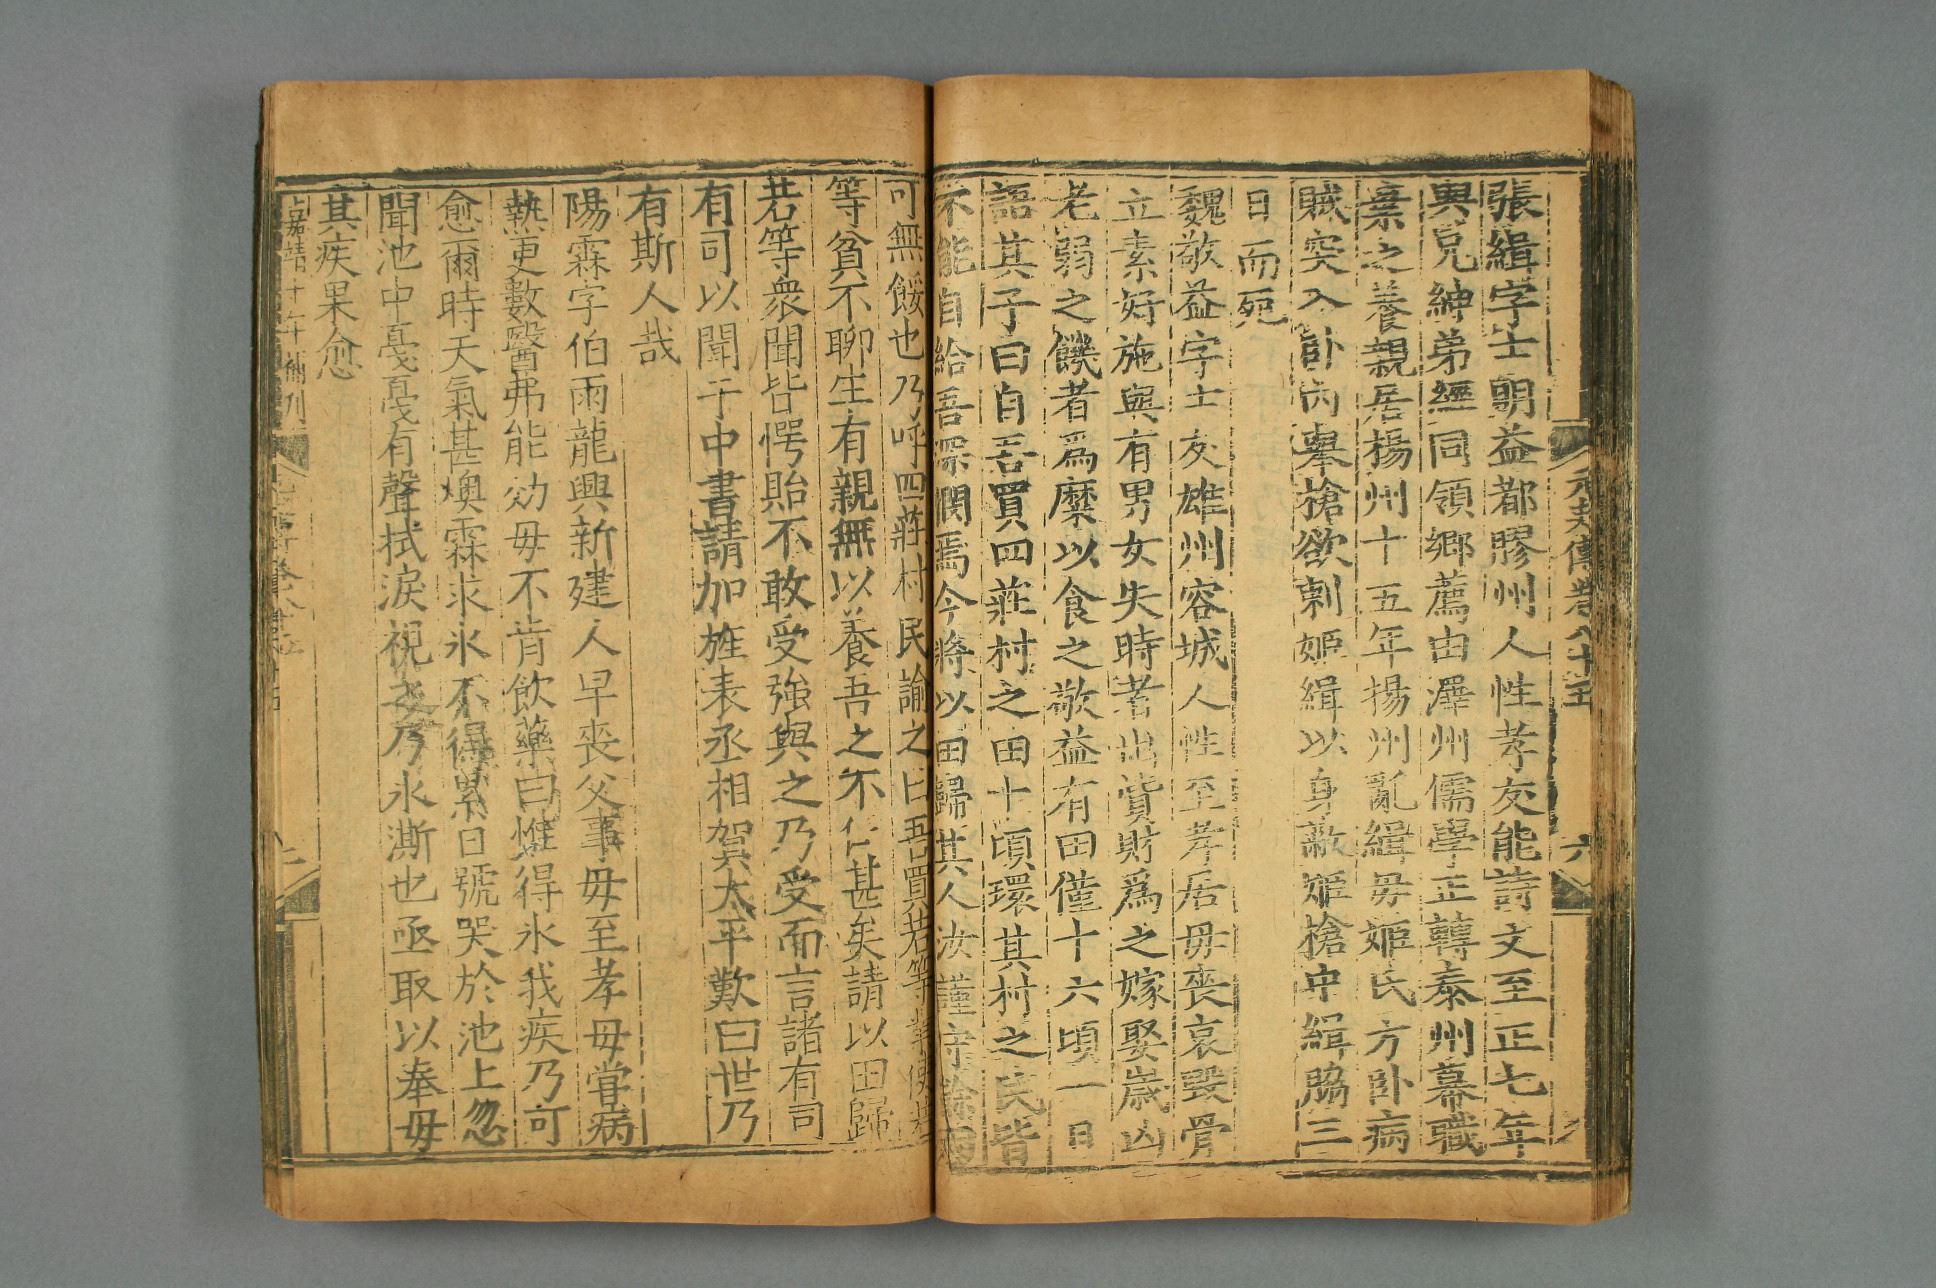 元史列傳卷八十五
六
張緝字士明益都膠州人性孝友能詩文至正七年
與兄紳弟經同領鄉薦由澤州儒學正轉泰州幕職
棄之養親居揚州十五年揚州亂緝毋姬氏方卧病
賊突入卧内舉槍欲刺姬緝以身蔽姬槍中緝脇三
日而死
魏敬益字士友雄州容城人性至孝居毋喪哀毀骨
立素好施與有男女失時者出貲財爲之嫁娶歲凶
老弱之饑者爲糜以食之敬益有田僅十六頃一日
語其子曰自吾買四莊村之田十頃環其村之民皆
不能自給吾深憫焉今將以田歸其人汝謹守餘田
可無餒也乃呼四莊村民諭之曰吾買若等業使若
等貧不聊生有親無以養吾之不仁甚矣請以田歸
若等衆聞皆愕眙不敢受強與之乃受而言諸有司
有司以聞于中書請加旌表丞相賀太平歎曰世乃
有斯人哉
湯霖字伯雨龍興新建人早喪父事毋至孝毋嘗病
熱更數醫弗能効毋不肯飲藥曰惟得氷我疾乃可
愈爾時天氣甚燠霖求氷不得累日號哭於池上忽
聞池中戞戞有聲拭淚視之乃氷澌也亟取以奉毋
其疾果愈
嘉靖十年補刊